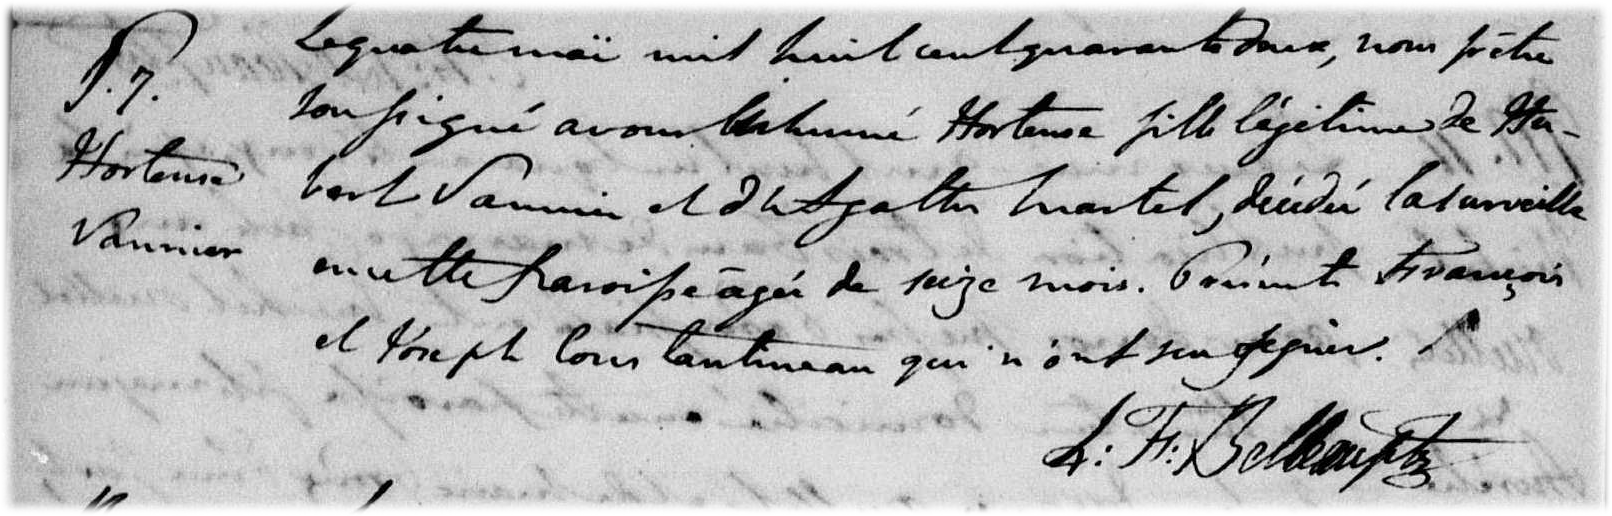 S. 7.
Hortense
Vannier
Le quatre mai mil huit cent quarante deux, nous prêtre
soussigné avons inhumé Hortense fille légitime de Hu-
bert Vannier et d'Agathe Martel, décédée la surveille
en cette paroisse âgée de seize mois. Présents François
et Joseph Constantineau qui n'ont su signer.
L: F: Belleau ptre